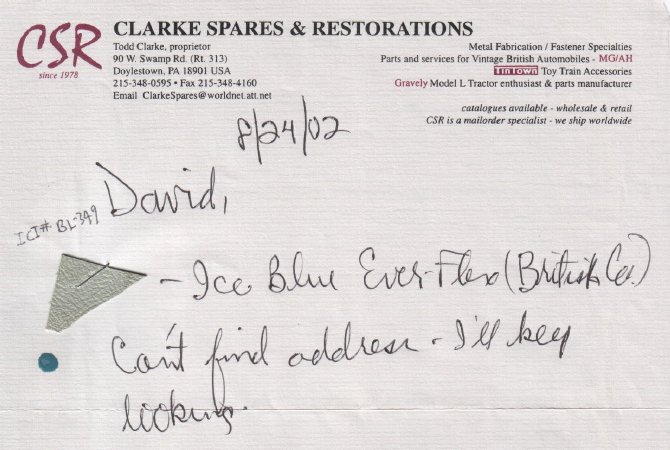 CSR
since 1978
CLARKE SPARES & RESTORATIONS
Todd Clarke, proprietor
90 W. Swamp Rd. (Rt. 313)
Doylestown, PA 18901 USA
215-348-0595 • Fax 215-348-4160
Email ClarkeSpares@worldnet.att.net
Metal Fabrication / Fastener Specialties
Parts and services for Vintage British Automobiles - MG/AH
TinTown Toy Train Accessories
Gravely Model L Tractor enthusiast & parts manufacturer
catalogues available - wholesale & retail
CSR is a mailorder specialist - we ship worldwide
8/24/02
David,
ICI# BL-349
- Ice Blue Ever-Flex (British Co.)
Can't find address - I'll keep
looking.